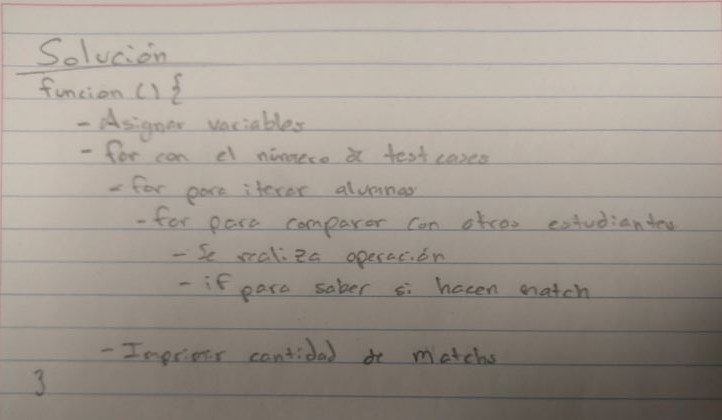 Solución
funcion () {
- Asignar variables
- for con el número de test cases
- for para iterar alumnos
- for para comparar con otros estudiantes
- Se realiza operación
- if para saber si hacen match
- Imprimir cantidad de matchs
}